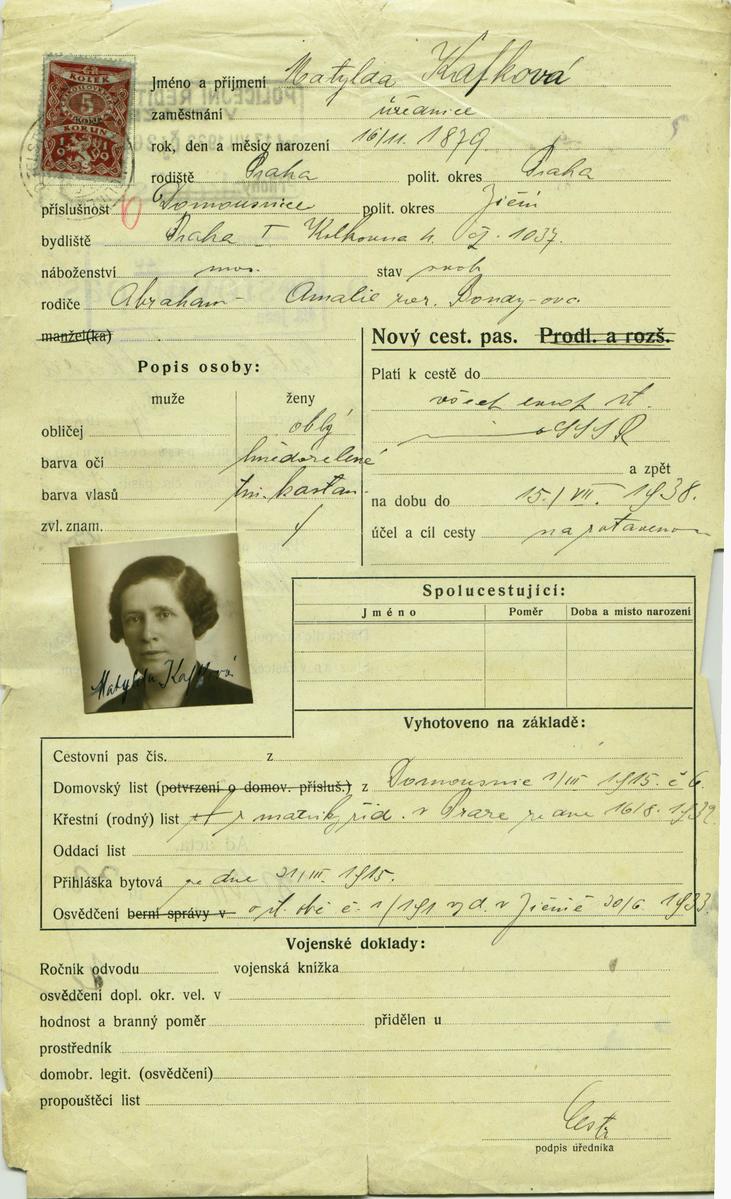 ČR
KOLEK
5
KORUN
Jméno a příjmení Matylda Kafková
zaměstnání úřednice
rok, den a měsíc narození 16/11. 1879
rodiště Praha polit. okres Praha
příslušnost Domousnice polit. okres Jičín
bydliště Praha I Kolkovna h. čp. 1037.
náboženství mos. stav svob.
rodiče Abraham - Amalie roz. Bondy-ova
manžel(ka)
Nový cest. pas. Prodl. a rozš.
Popis osoby:
muže ženy
Platí k cestě do
všech evrop. st.
SSSR
obličej oblý
barva očí hnědozelené
a zpět
barva vlasů tm. kaštan.
na dobu do 15./VII. 1938.
zvl. znam.
účel a cíl cesty na zotavenou
Matylda Kafková
Spolucestující:
Jméno Poměr Doba a místo narození
Vyhotoveno na základě:
Cestovní pas čís. z
Domovský list (potvrzení o domov. přísluš.) z Domousnic 1/III 1915. č 6.
Křestní (rodný) list z matriky žid. v Praze ze dne 16/8. 1932.
Oddací list
Přihláška bytová ze dne 21/III. 1915.
Osvědčení berní správy v o st. obč. č. 1/191 vyd. v Jičíně 20/6 1933.
Vojenské doklady:
Ročník odvodu vojenská knížka
osvědčení dopl. okr. vel. v
hodnost a branný poměr přidělen u
prostředník
domobr. legit. (osvědčení)
propouštěcí list
podpis úředníka